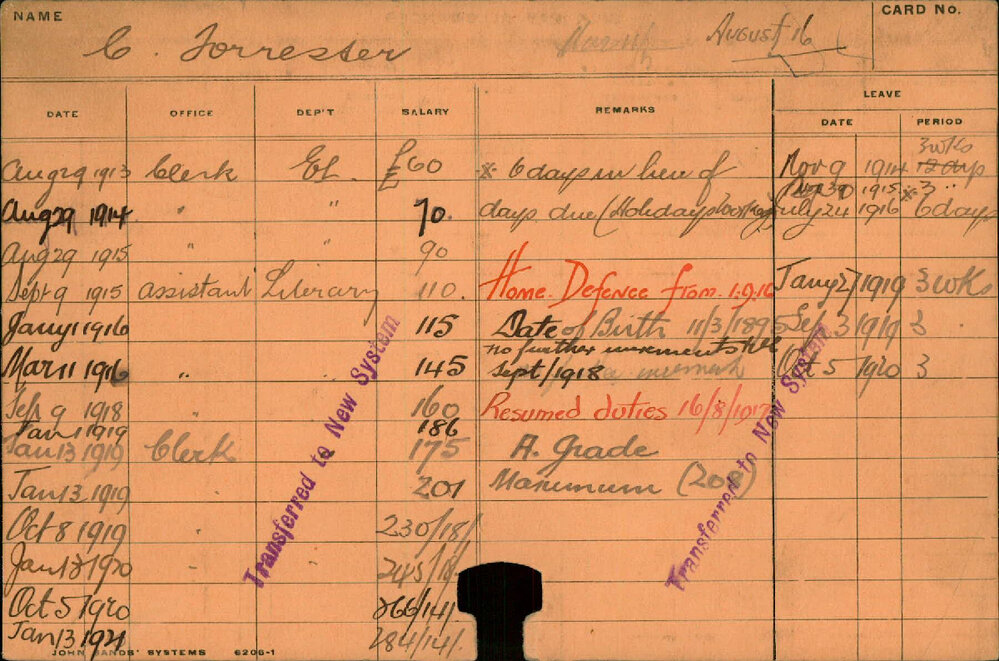 NAME
C. Forrester
August 16
CARD No.
LEAVE
DATE OFFICE DEP'T SALARY REMARKS DATE PERIOD
3 wks
Aug 29 1913 Clerk £60 * 6 days in lieu of Nov 9 1914 12 days
1915 * 3 "
Aug 29 1914 " " 70. days due (Holidays July 24 1916 6 days
Aug 29 1915 " " 90
Sept 9 1915 assistant Library 110. Home Defence from 1.9.16 Jany 27 1919 3 wks
Jany 1 1916 115 Date of Birth 11/3/1895 Sep 3 1919 3
no further increments till
Mar 11 1916 " 145 Sept/1918 Oct 5 1920 3
Sep 9 1918 160 Resumed duties 16/8/1917
Jan 1 1919 186
Jan 13 1919 Clerk 175 A. Grade
Jan 13 1919 201 Maximum (208)
Oct 8 1919 " 230/18/
Jan 13 1920 " 245/18/.
Oct 5 1920 266/14/.
Jan 13 1921 284/14/.
Transferred to New System
Transferred to New System
JOHN SANDS' SYSTEMS 6206-1